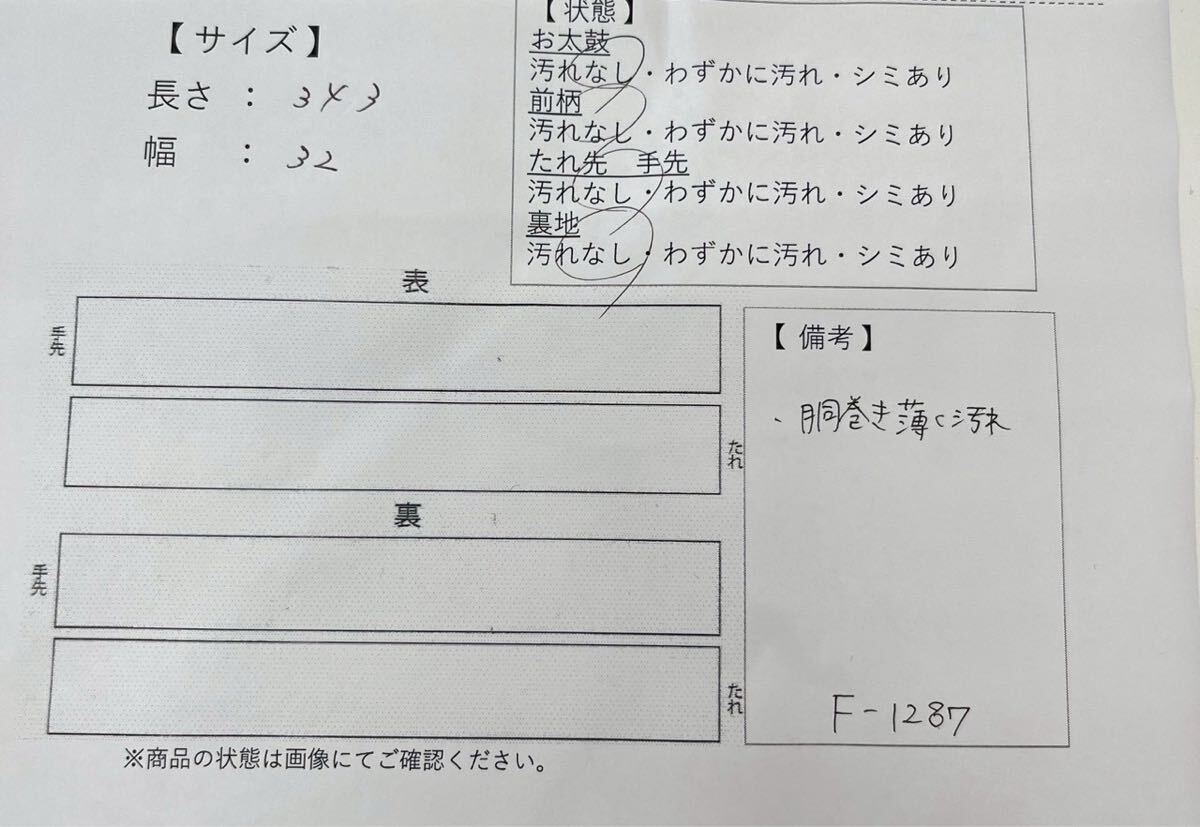 【サイズ】
長さ : 343
幅 : 32
【状態】
お太鼓
汚れなし・わずかに汚れ・シミあり
前柄
汚れなし・わずかに汚れ・シミあり
たれ先 手先
汚れなし・わずかに汚れ・シミあり
裏地
汚れなし・わずかに汚れ・シミあり
表
手先
たれ
裏
手先
たれ
※商品の状態は画像にてご確認ください。
【備考】
、胴巻き薄く汚れ
F-1287